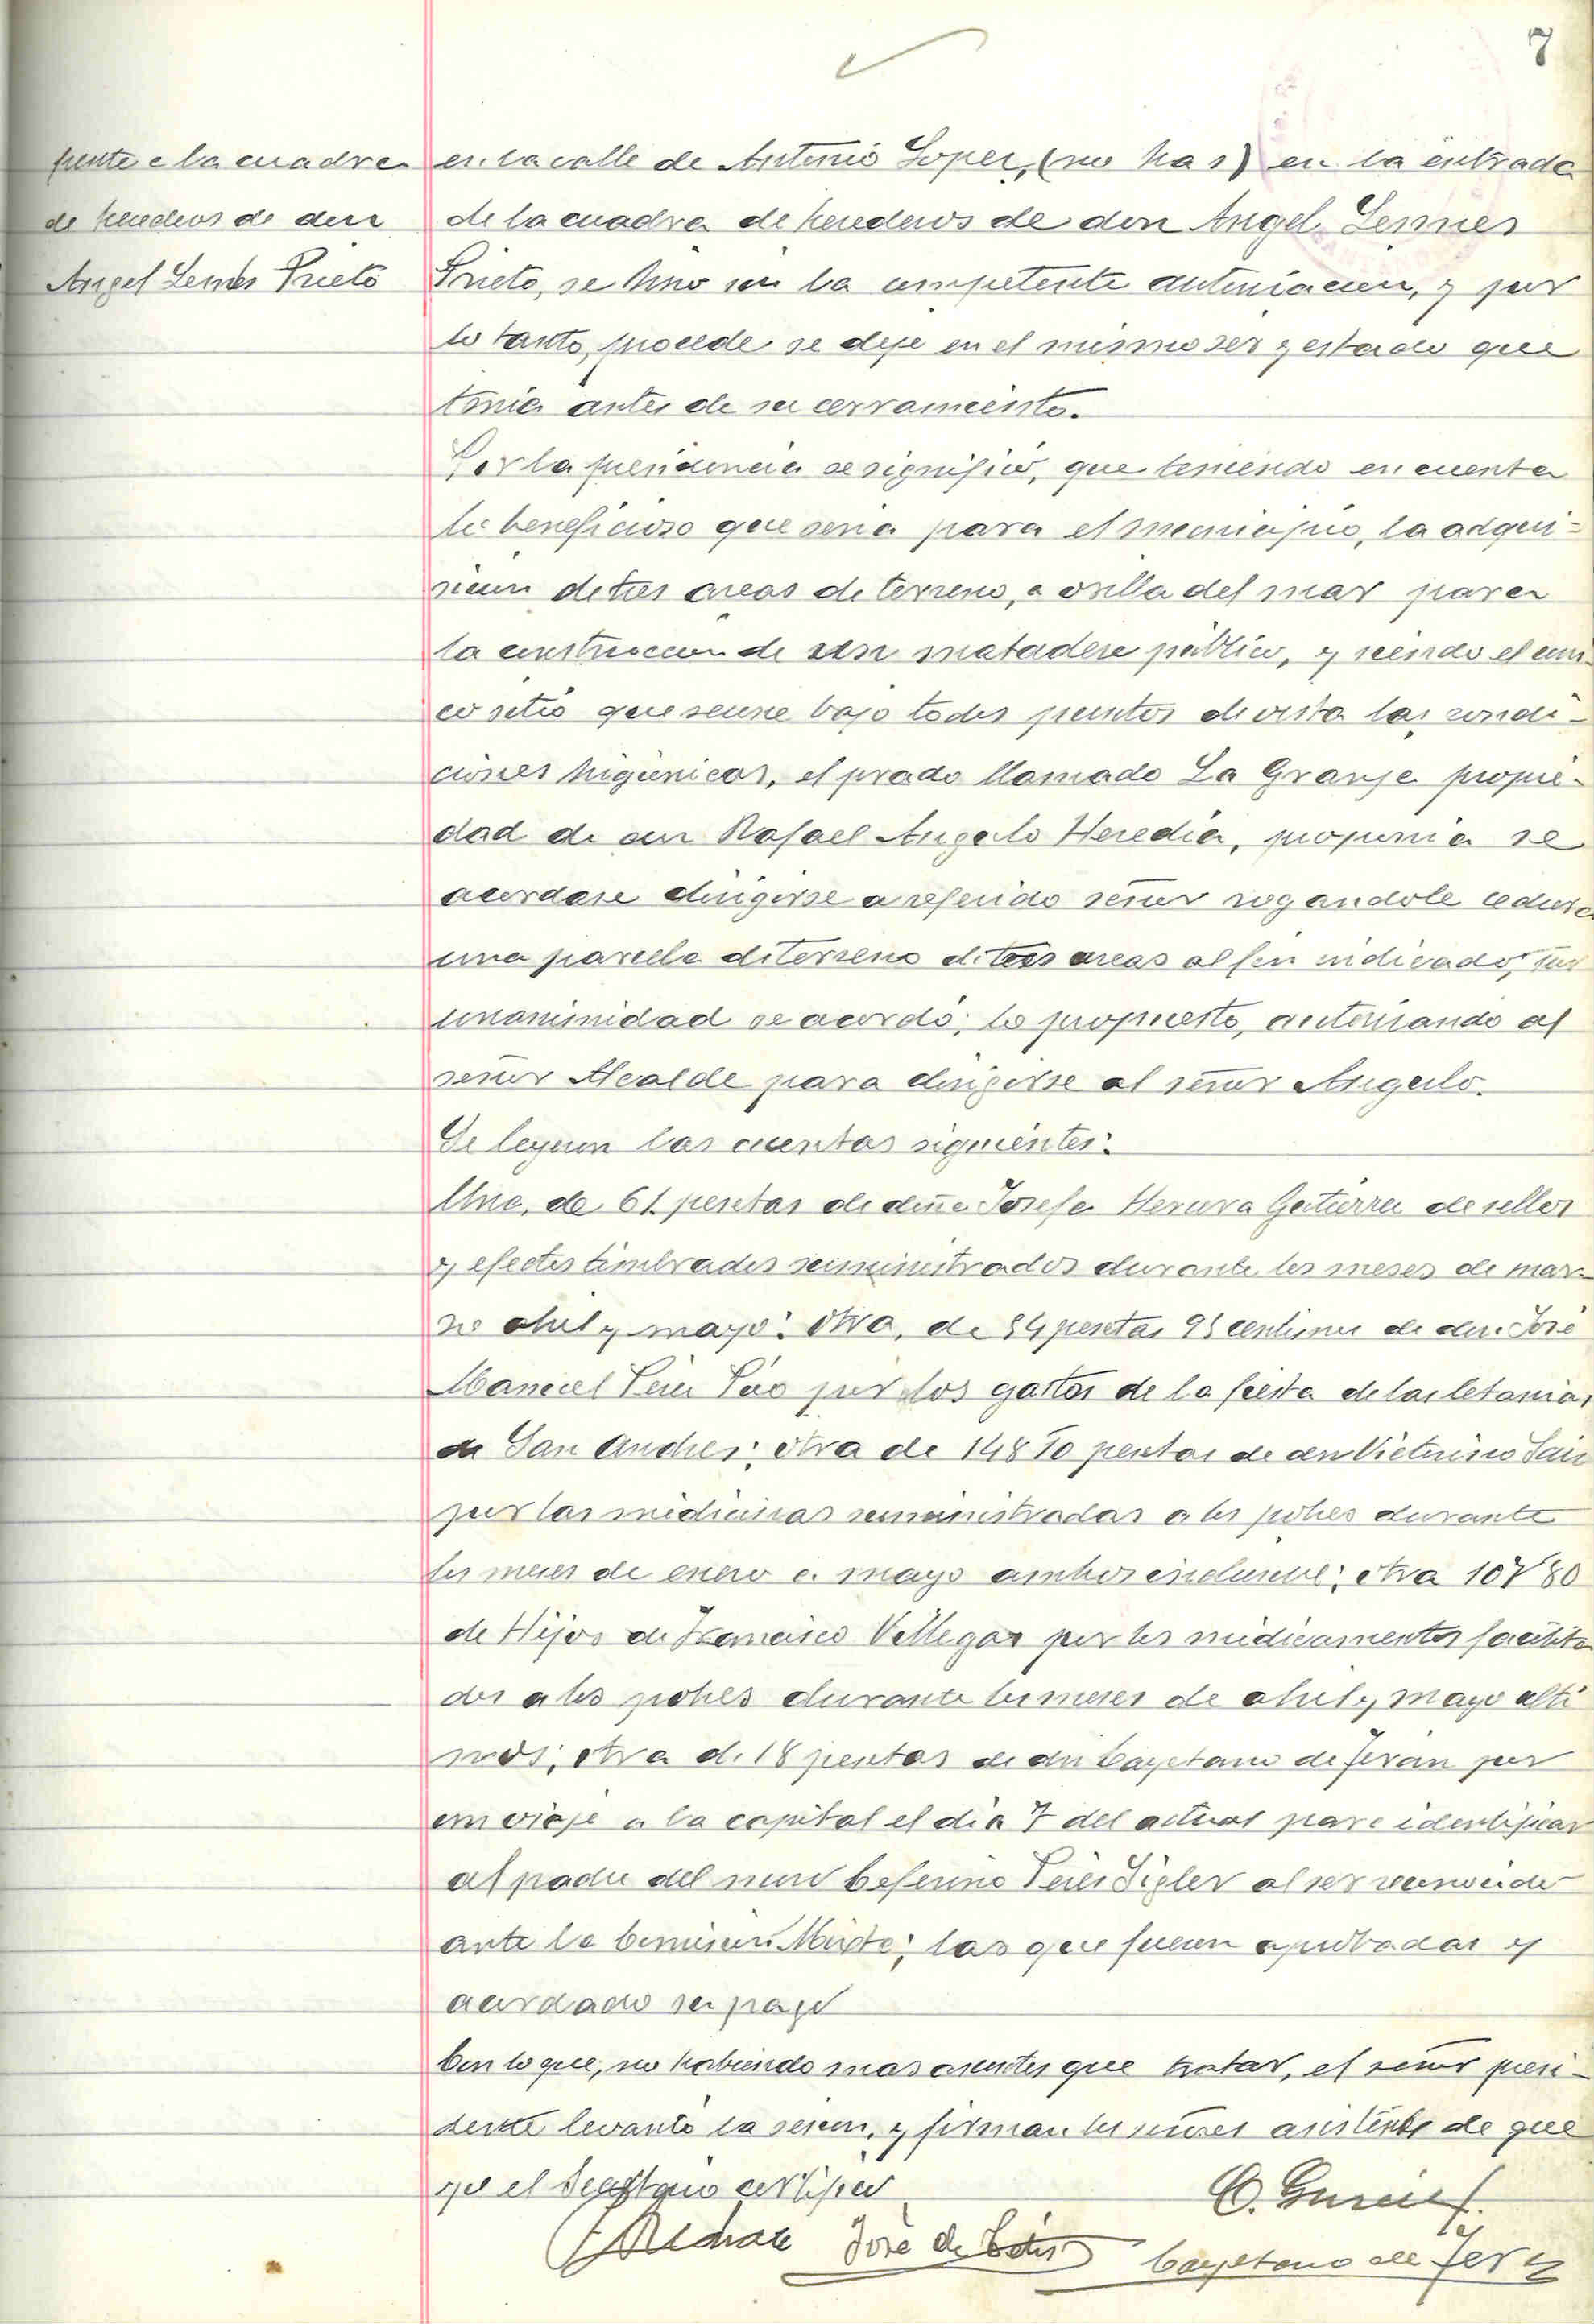 7
frente a la cuadra
de herederos de don
Angel Lemes Prieto
en la calle de Antonio Lopez, (no has) en la entrada
de la cuadra de herederos de don Angel Lemes
Prieto, se hizo sin la competente autorizacion, y por
lo tanto, procede se deje en el mismo ser y estado que
tenia antes de su cerramiento.
Por la presidencia se significó, que teniendo en cuenta
lo beneficioso que seria para el municipio, la adqui-
sicion de tres areas de terreno, a orilla del mar para
la construccion de un matadero público, y siendo el uni-
co sitio que reune bajo todos puntos de vista las condi-
ciones higiénicas, el prado llamado La Granja propie-
dad de don Rafael Angulo Heredia, proponia se
acordase dirigirse a referido señor rogandole cediera
una parcela de terreno de tres areas al fin indicado, por
unanimidad se acordó; lo propuesto, autorizando al
señor Alcalde para dirigirse al señor Angulo.
Se leyeron las cuentas siguientes:
Una, de 61 pesetas de doña Josefa Herrera Gutierrez de sellos
y efectos timbrados suministrados durante los meses de mar-
zo abril y mayo: otra, de 54 pesetas 95 centimos de don José
Manuel Perez por los gastos de la fiesta de las letanias
de San Andres; otra de 148 10 pesetas de don Victorino Sainz
por las medicinas suministradas a los pobres durante
los meses de enero a mayo ambos inclusive; otra 107 80
de Hijos de Francisco Villegas por los medicamentos facilita
dos a los pobres durante los meses de abril y mayo ulti
mos; otra de 18 pesetas de don Cayetano de Terán por
un viaje a la capital el dia 7 del actual para identificar
al padre del mozo Ceferino Perez Sigler al ser reconocido
ante la Comision Mixta; las que fueron aprobadas y
acordado su pago
Con lo que, no habiendo mas asuntos que tratar, el señor presi-
dente levantó la sesion, y firman los señores asistentes de que
yo el Secretario certifico
José de
Cayetano de Teran